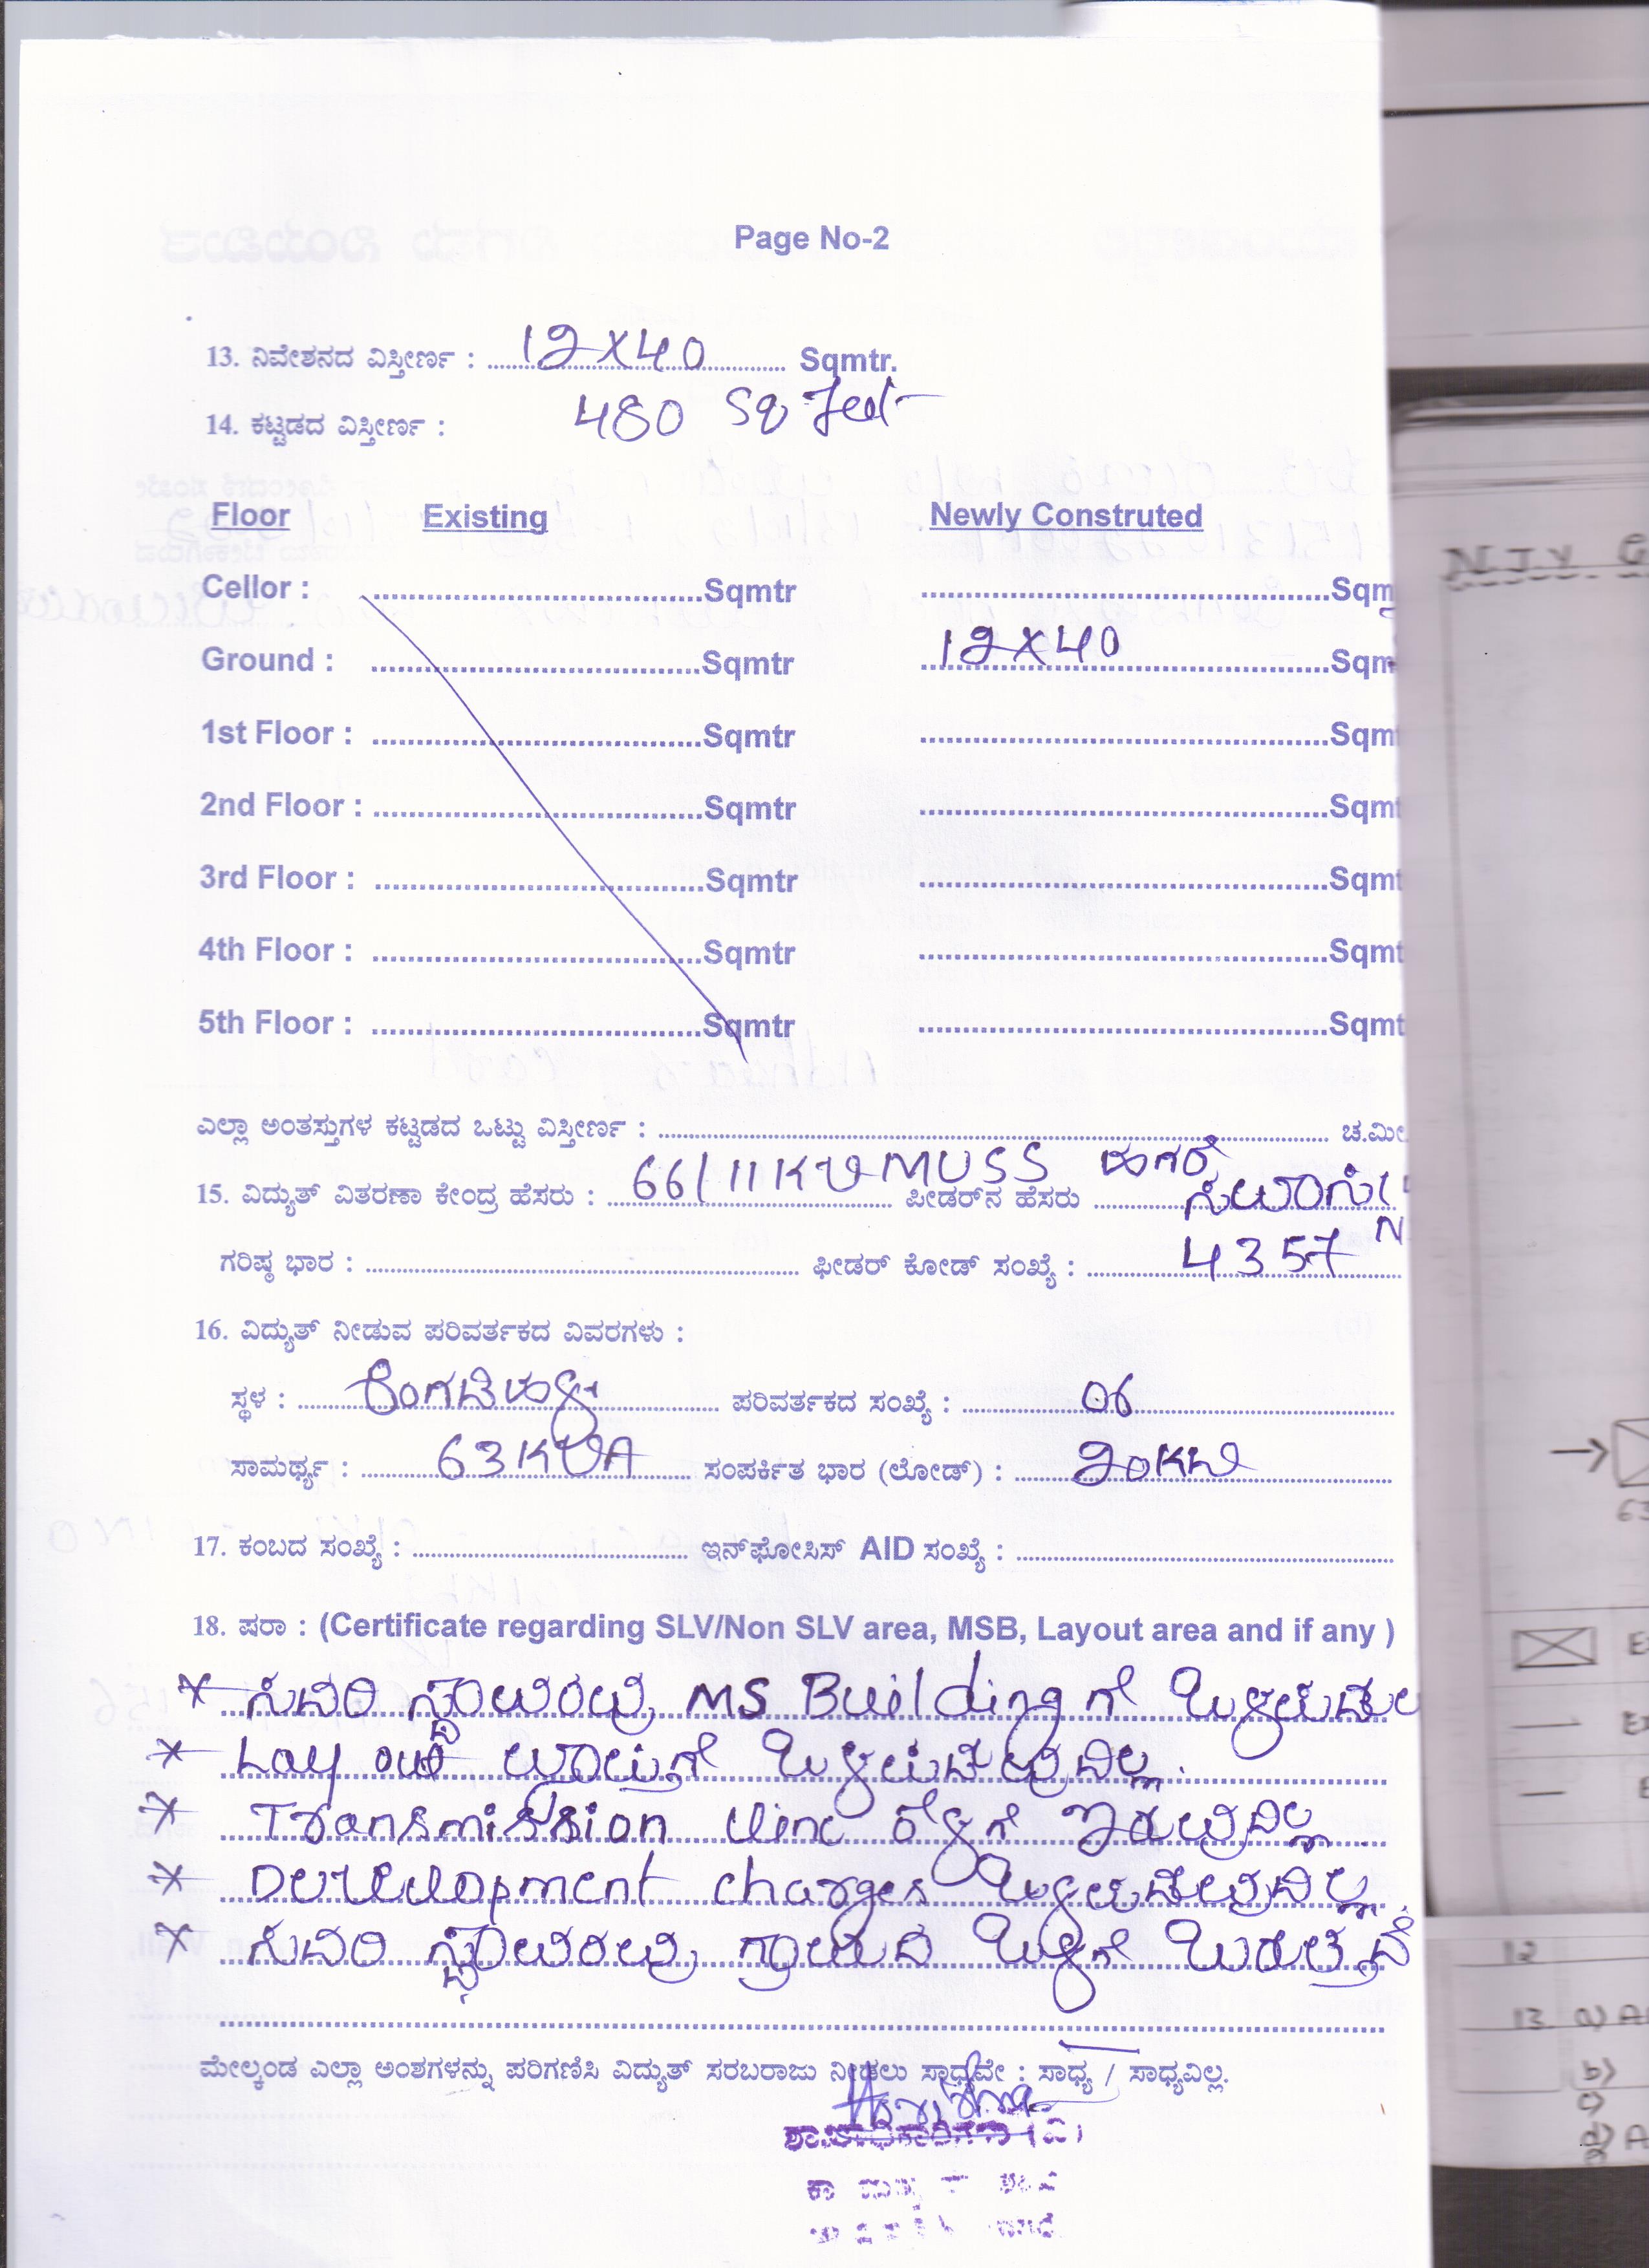 Page No-2
13. ನಿವೇಶನದ ವಿಸ್ತೀರ್ಣ : 12X40 Sqmtr.
14. ಕಟ್ಟಡದ ವಿಸ್ತೀರ್ಣ : 480 Sq Feet
Floor Existing Newly Constructed
Cellor : Sqmtr Sqm
Ground : Sqmtr 12X40 Sqm
1st Floor : Sqmtr Sqm
2nd Floor : Sqmtr Sqmt
3rd Floor : Sqmtr Sqmt
4th Floor : Sqmtr Sqmt
5th Floor : Sqmtr Sqmt
ಎಲ್ಲಾ ಅಂತಸ್ತುಗಳ ಕಟ್ಟಡದ ಒಟ್ಟು ವಿಸ್ತೀರ್ಣ : ಚ.ಮೀ
15. ವಿದ್ಯುತ್ ವಿತರಣಾ ಕೇಂದ್ರ ಹೆಸರು : 66/11KV MUSS ಹಗರೆ ಪೀಡರ್‌ನ ಹೆಸರು
ಗರಿಷ್ಠ ಭಾರ : ಫೀಡರ್ ಕೋಡ್ ಸಂಖ್ಯೆ : 4357
16. ವಿದ್ಯುತ್ ನೀಡುವ ಪರಿವರ್ತಕದ ವಿವರಗಳು :
ಸ್ಥಳ : ಪರಿವರ್ತಕದ ಸಂಖ್ಯೆ : 06
ಸಾಮರ್ಥ್ಯ : 63KVA ಸಂಪರ್ಕಿತ ಭಾರ (ಲೋಡ್) : 20KW
17. ಕಂಬದ ಸಂಖ್ಯೆ : ಇನ್‌ಫೋಸಿಸ್ AID ಸಂಖ್ಯೆ :
18. ಷರಾ : (Certificate regarding SLV/Non SLV area, MSB, Layout area and if any )
* ಸದರಿ ಸ್ಥಾವರವು MS Building ಗೆ
* Lay out ಒಳಪಡುವುದಿಲ್ಲ.
* Transmission line ಕೆಳಗೆ ಇರುವುದಿಲ್ಲ.
* Development charges ಒಳಪಡುವುದಿಲ್ಲ.
* ಸದರಿ ಸ್ಥಾವರವು ಗ್ರಾಮದ ಒಳಗೆ ಬರುತ್ತದೆ
ಮೇಲ್ಕಂಡ ಎಲ್ಲಾ ಅಂಶಗಳನ್ನು ಪರಿಗಣಿಸಿ ವಿದ್ಯುತ್ ಸರಬರಾಜು ನೀಡಲು ಸಾಧ್ಯವೇ : ಸಾಧ್ಯ / ಸಾಧ್ಯವಿಲ್ಲ.
NJY
63
12
13. a) A
b)
c)
d) A